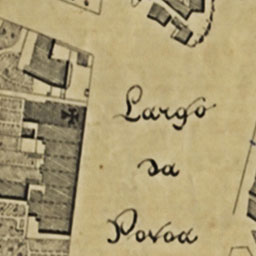 Largo
da
Povoa